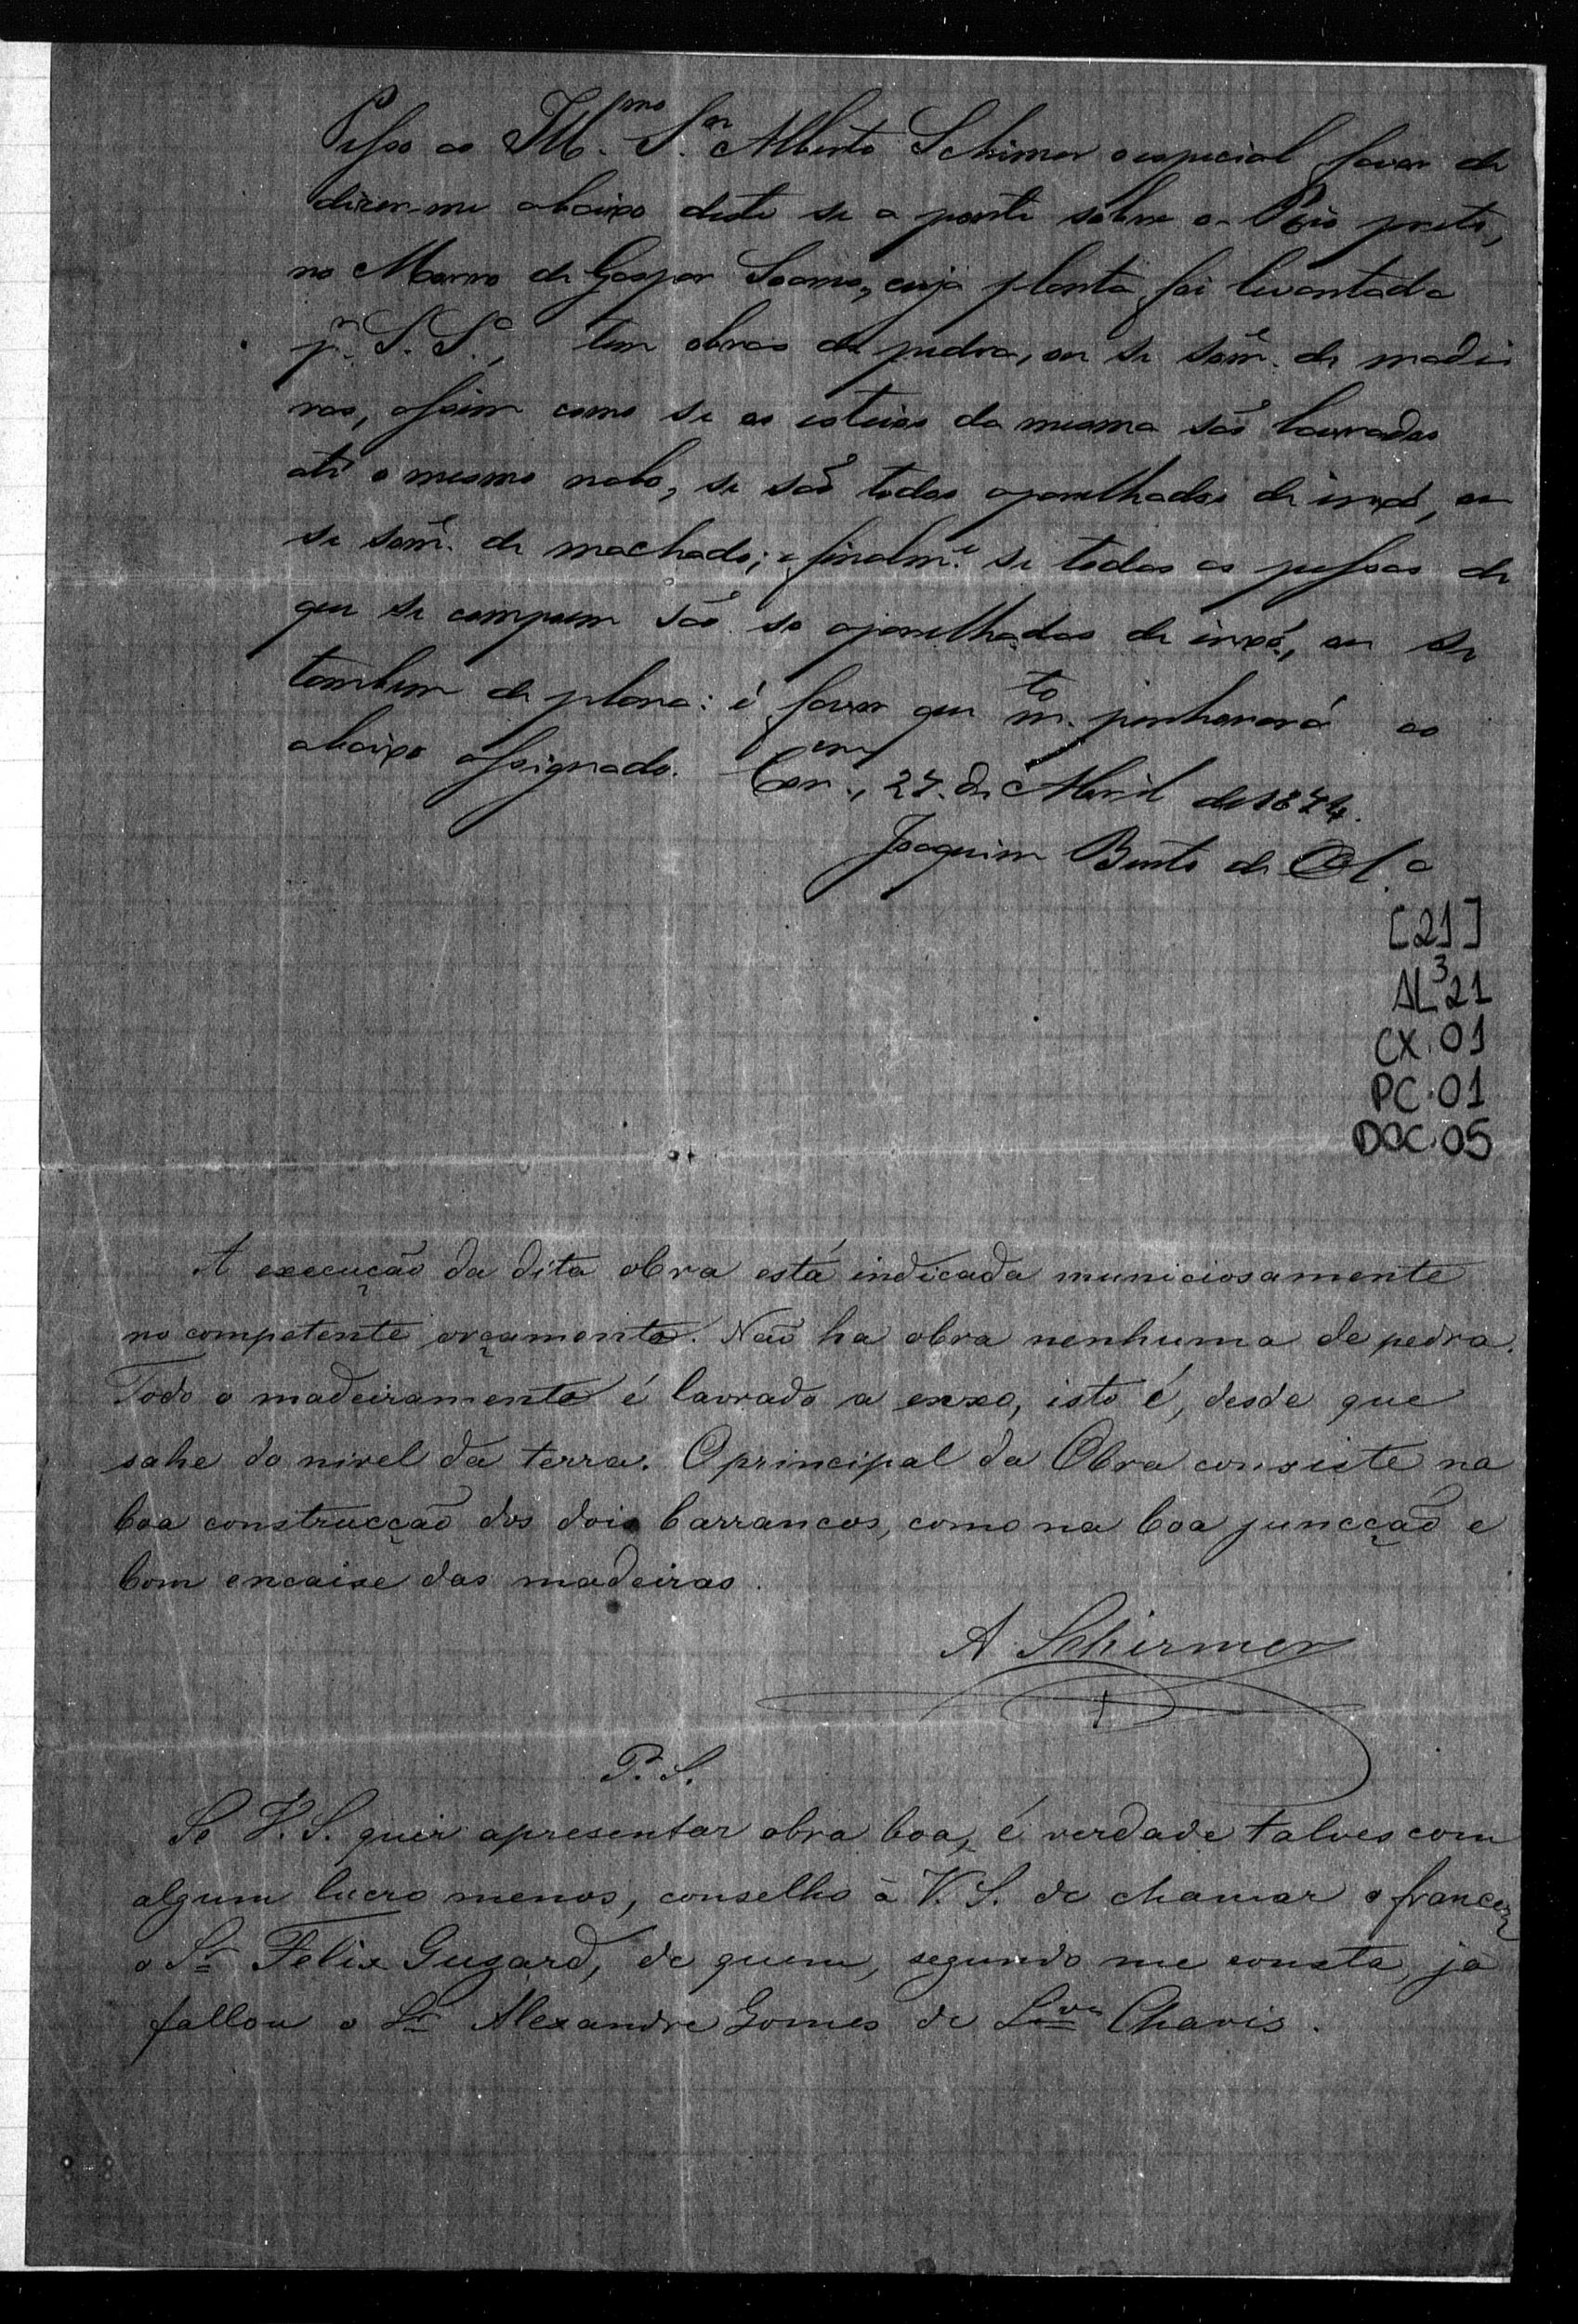 Pesso ao Ill.mo S.nr Alberto Schirmer o especial favor de
dizer-me abaixo deste se a ponte sobre o Rio preto,
no Morro de Gaspar Soares, cuja planta foi levantada
p.r S. S.a, tem obras de pedra, ou se sóm.e de madei
ras, assim como se os esteios da mesma são lavrados
até o mesmo nabo, se são todos aparelhados de inxó, ou
se sóm.e de machado; e finalm.e se todas as pessas de
que se compoem são so aparelhadas de inxó, ou se
tambem de plana: é favor que m.to penhorará ao
abaixo assignado. Con.am, 27 de Abril de 1874.
Joaquim Bento de Ol.a
[21]
AL3 21
CX. 01
PC. 01
DOC. 05
A execução da dita obra está indicada municiosamente
no competente orçamento. Não ha obra nenhuma de pedra.
Todo o madeiramento é lavrado a enxo, isto é, desde que
sahe do nivel da terra. O principal da Obra consiste na
boa construcção dos dois barrancos, como na boa juncção e
bom encaixe das madeiras.
A Schirmer
P. S.
Se V. S. quer apresentar obra boa, é verdade talves com
algum lucro menos, conselho à V. S. de chamar o francez
o Sr Felix Guzard, de quem, segundo me consta, já
fallou o Sr Alexandre Gomes de Chaves.